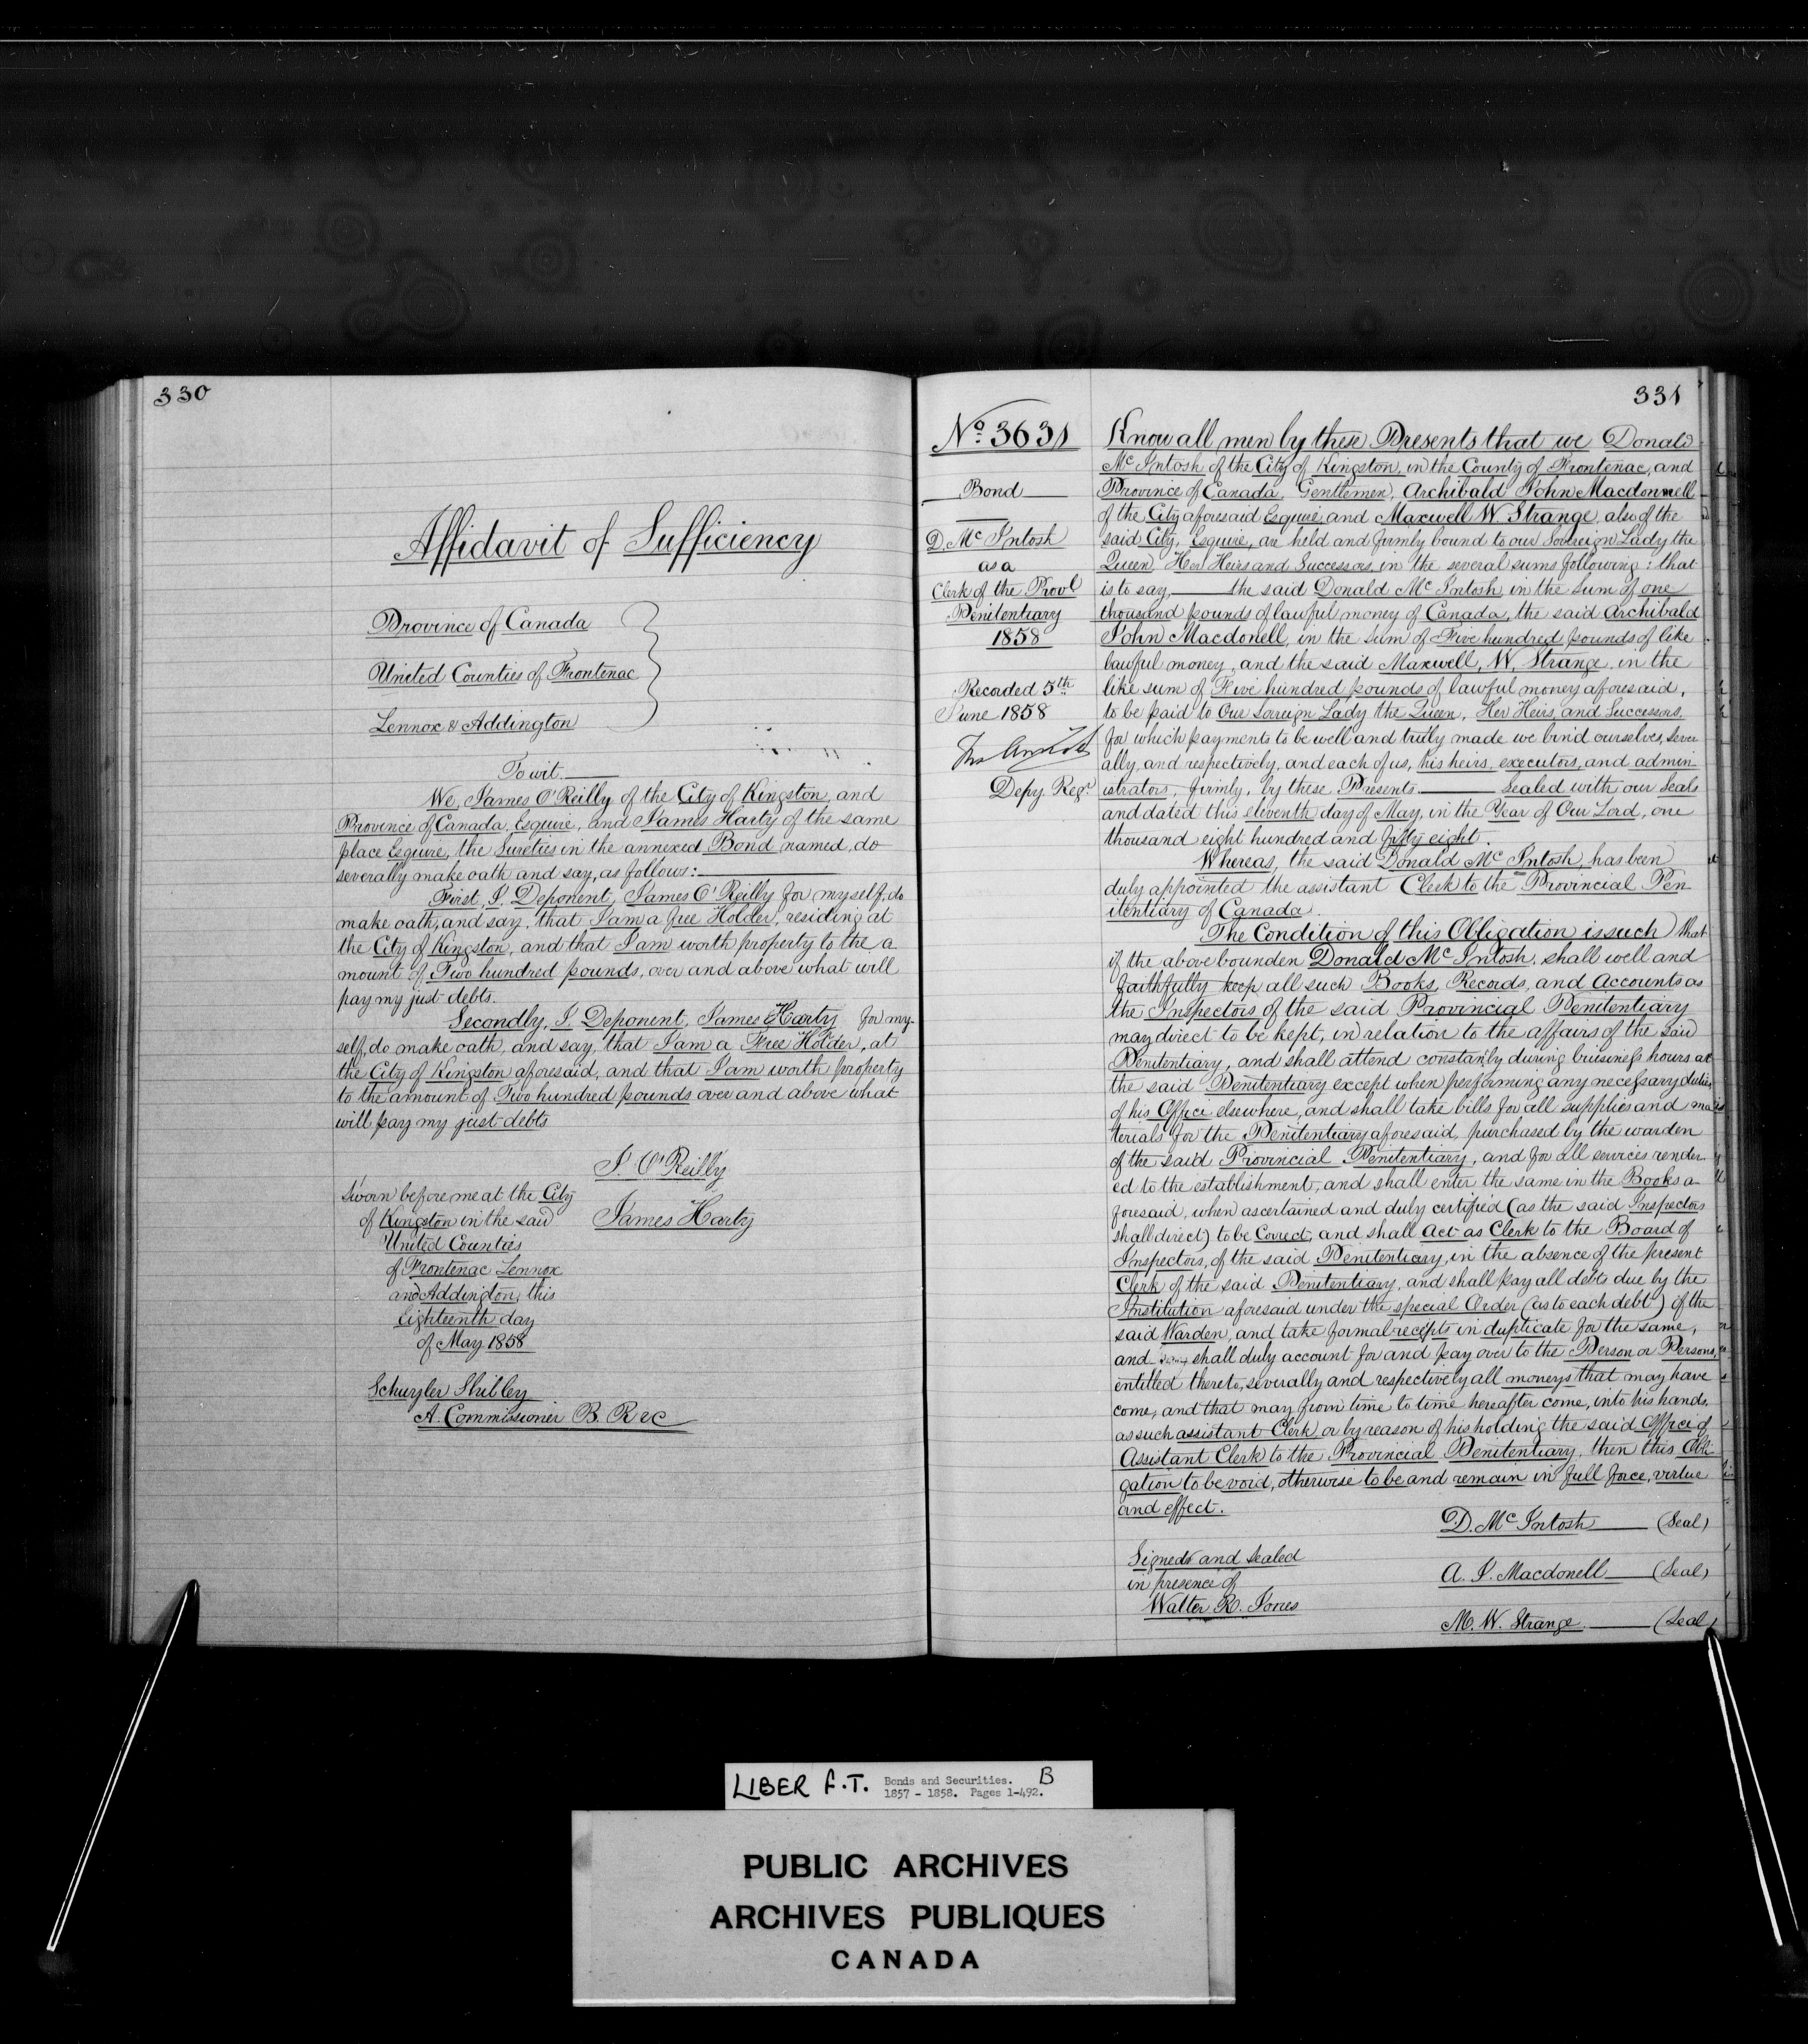 330
Affidavit of Sufficiency
Province of Canada
United Counties of Frontenac
Lennox & Addington
To wit.
We, James O'Reilly of the City of Kingston, and
Province of Canada, Esquire, and James Harty of the same
place Esquire, the Sureties in the annexed Bond named, do
severally make oath and say, as follows:
First, I, Deponent, James O'Reilly for myself, do
make oath, and say, that I am a free Holder, residing at
the City of Kingston, and that I am worth property to the a
mount of Two hundred pounds, over and above what will
pay my just debts.
Secondly, I, Deponent, James Harty for my-
self, do make oath, and say, that I am a Free Holder, at
the City of Kingston aforesaid, and that I am worth property
to the amount of Two hundred pounds over and above what
will pay my just debts
J. O'Reilly
James Harty
Sworn before me at the City
of Kingston in the said
United Counties
of Frontenac Lennox
and Addington, this
Eighteenth day
of May 1858
Schuyler Shibley
A. Commissioner B. R &c
331
No. 3631
Bond
D. Mc Intosh
as a
Clerk of the Provl
Penitentiary
1858
Recorded 5th
June 1858
Depy. Regr.
Know all men by these Presents that we Donald
Mc Intosh of the City of Kingston, in the County of Frontenac, and
Province of Canada, Gentlemen, Archibald John Macdonnell
of the City aforesaid Esquire, and Maxwell W. Strange, also of the
said City, Esquire, are held and firmly bound to our Sovereign Lady the
Queen, Her Heirs and Successors, in the several sums following: that
is to say, the said Donald Mc Intosh in the Sum of one
thousand pounds of lawful money of Canada, the said Archibald
John Macdonell, in the Sum of Five hundred pounds of like
lawful money, and the said Maxwell, W. Strange, in the
like sum of Five hundred pounds of lawful money aforesaid,
to be paid to Our Sovreign Lady the Queen, Her Heirs, and Successors.
for which payments to be well and truly made we bind ourselves, sever
ally, and respectively, and each of us, his heirs, executors, and admin-
istrators, firmly, by these Presents. Sealed with our Seals
and dated this eleventh day of May, in the Year of Our Lord, one
thousand eight hundred and fifty eight.
Whereas, the said Donald Mc Intosh has been
duly appointed the assistant Clerk to the Provincial Pen-
itentiary of Canada.
The Condition of this Obligation is such that
if the above bounden Donald Mc Intosh, shall well and
faithfully keep all such Books, Records, and Accounts as
the Inspectors of the said Provincial Penitentiary
may direct to be kept, in relation to the affairs of the said
Penitentiary, and shall attend constantly during business hours at
the said Penitentiary except when performing any necessary duties
of his Office elsewhere, and shall take bills for all supplies and ma
terials for the Penitentiary aforesaid, purchased by the warden
of the said Provincial Penitentiary, and for all services render-
ed to the establishment, and shall enter the same in the Books a-
foresaid, when ascertained and duly certified (as the said Inspectors
shall direct) to be Correct, and shall Act as Clerk to the Board of
Inspectors, of the said Penitentiary, in the absence of the present
Clerk of the said Penitentiary, and shall pay all debts due by the
Institution aforesaid under the special Order (as to each debt) of the
said Warden, and take formal receipts in duplicate for the same,
and shall duly account for and pay over to the Person or Persons,
entitled thereto, severally and respectively all moneys that may have
come, and that may from time to time hereafter come, into his hands,
as such assistant Clerk, or by reason of his holding the said Office of
Assistant Clerk to the Provincial Penitentiary, then this Obli-
gation to be void, otherwise to be and remain in full force, virtue
and effect.
D. Mc Intosh (Seal)
Signed and Sealed
in presence of
Walter R. Jones
A. J. Macdonell (Seal)
M. W. Strange. (Seal)
LIBER F.T. Bonds and Securities. B
1857 - 1858. Pages 1-492.
PUBLIC ARCHIVES
ARCHIVES PUBLIQUES
CANADA